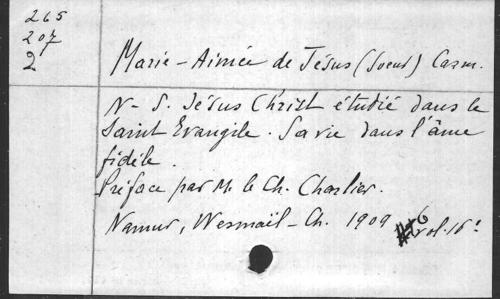 265
207
2
Marie-Aimée de Jésus (Soeur) Carm.
N-S. Jésus Christ étudié dans le
Saint Evangile. Sa vie dans l'âme
fidèle.
Préface par M. le Ch. Charlier.
Namur, Wesmaël-Ch. 1909
6 vol. 16°